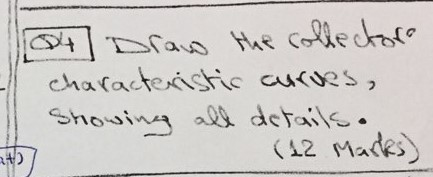 Q4 Draw the collector
characteristic curves,
Showing all details.
(12 Marks)